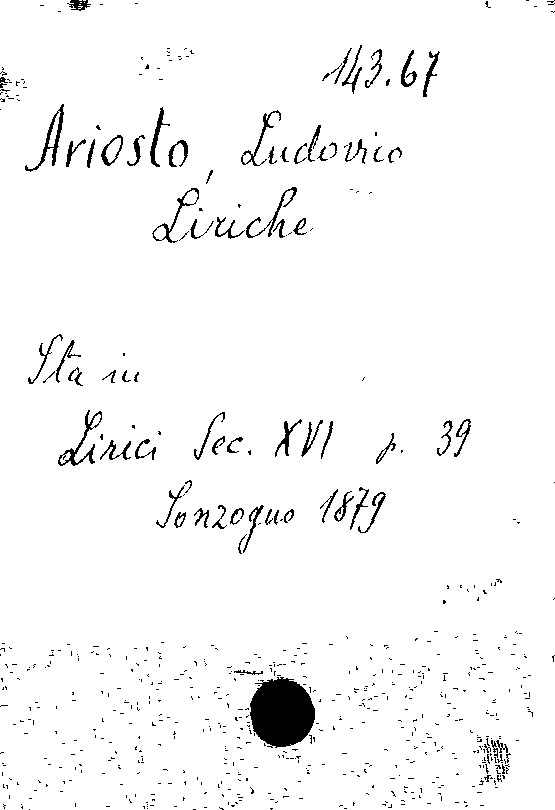 143.67
Ariosto, Ludovico
Liriche
Sta in
Lirici Sec. XVI p. 39
Sonzogno 1879